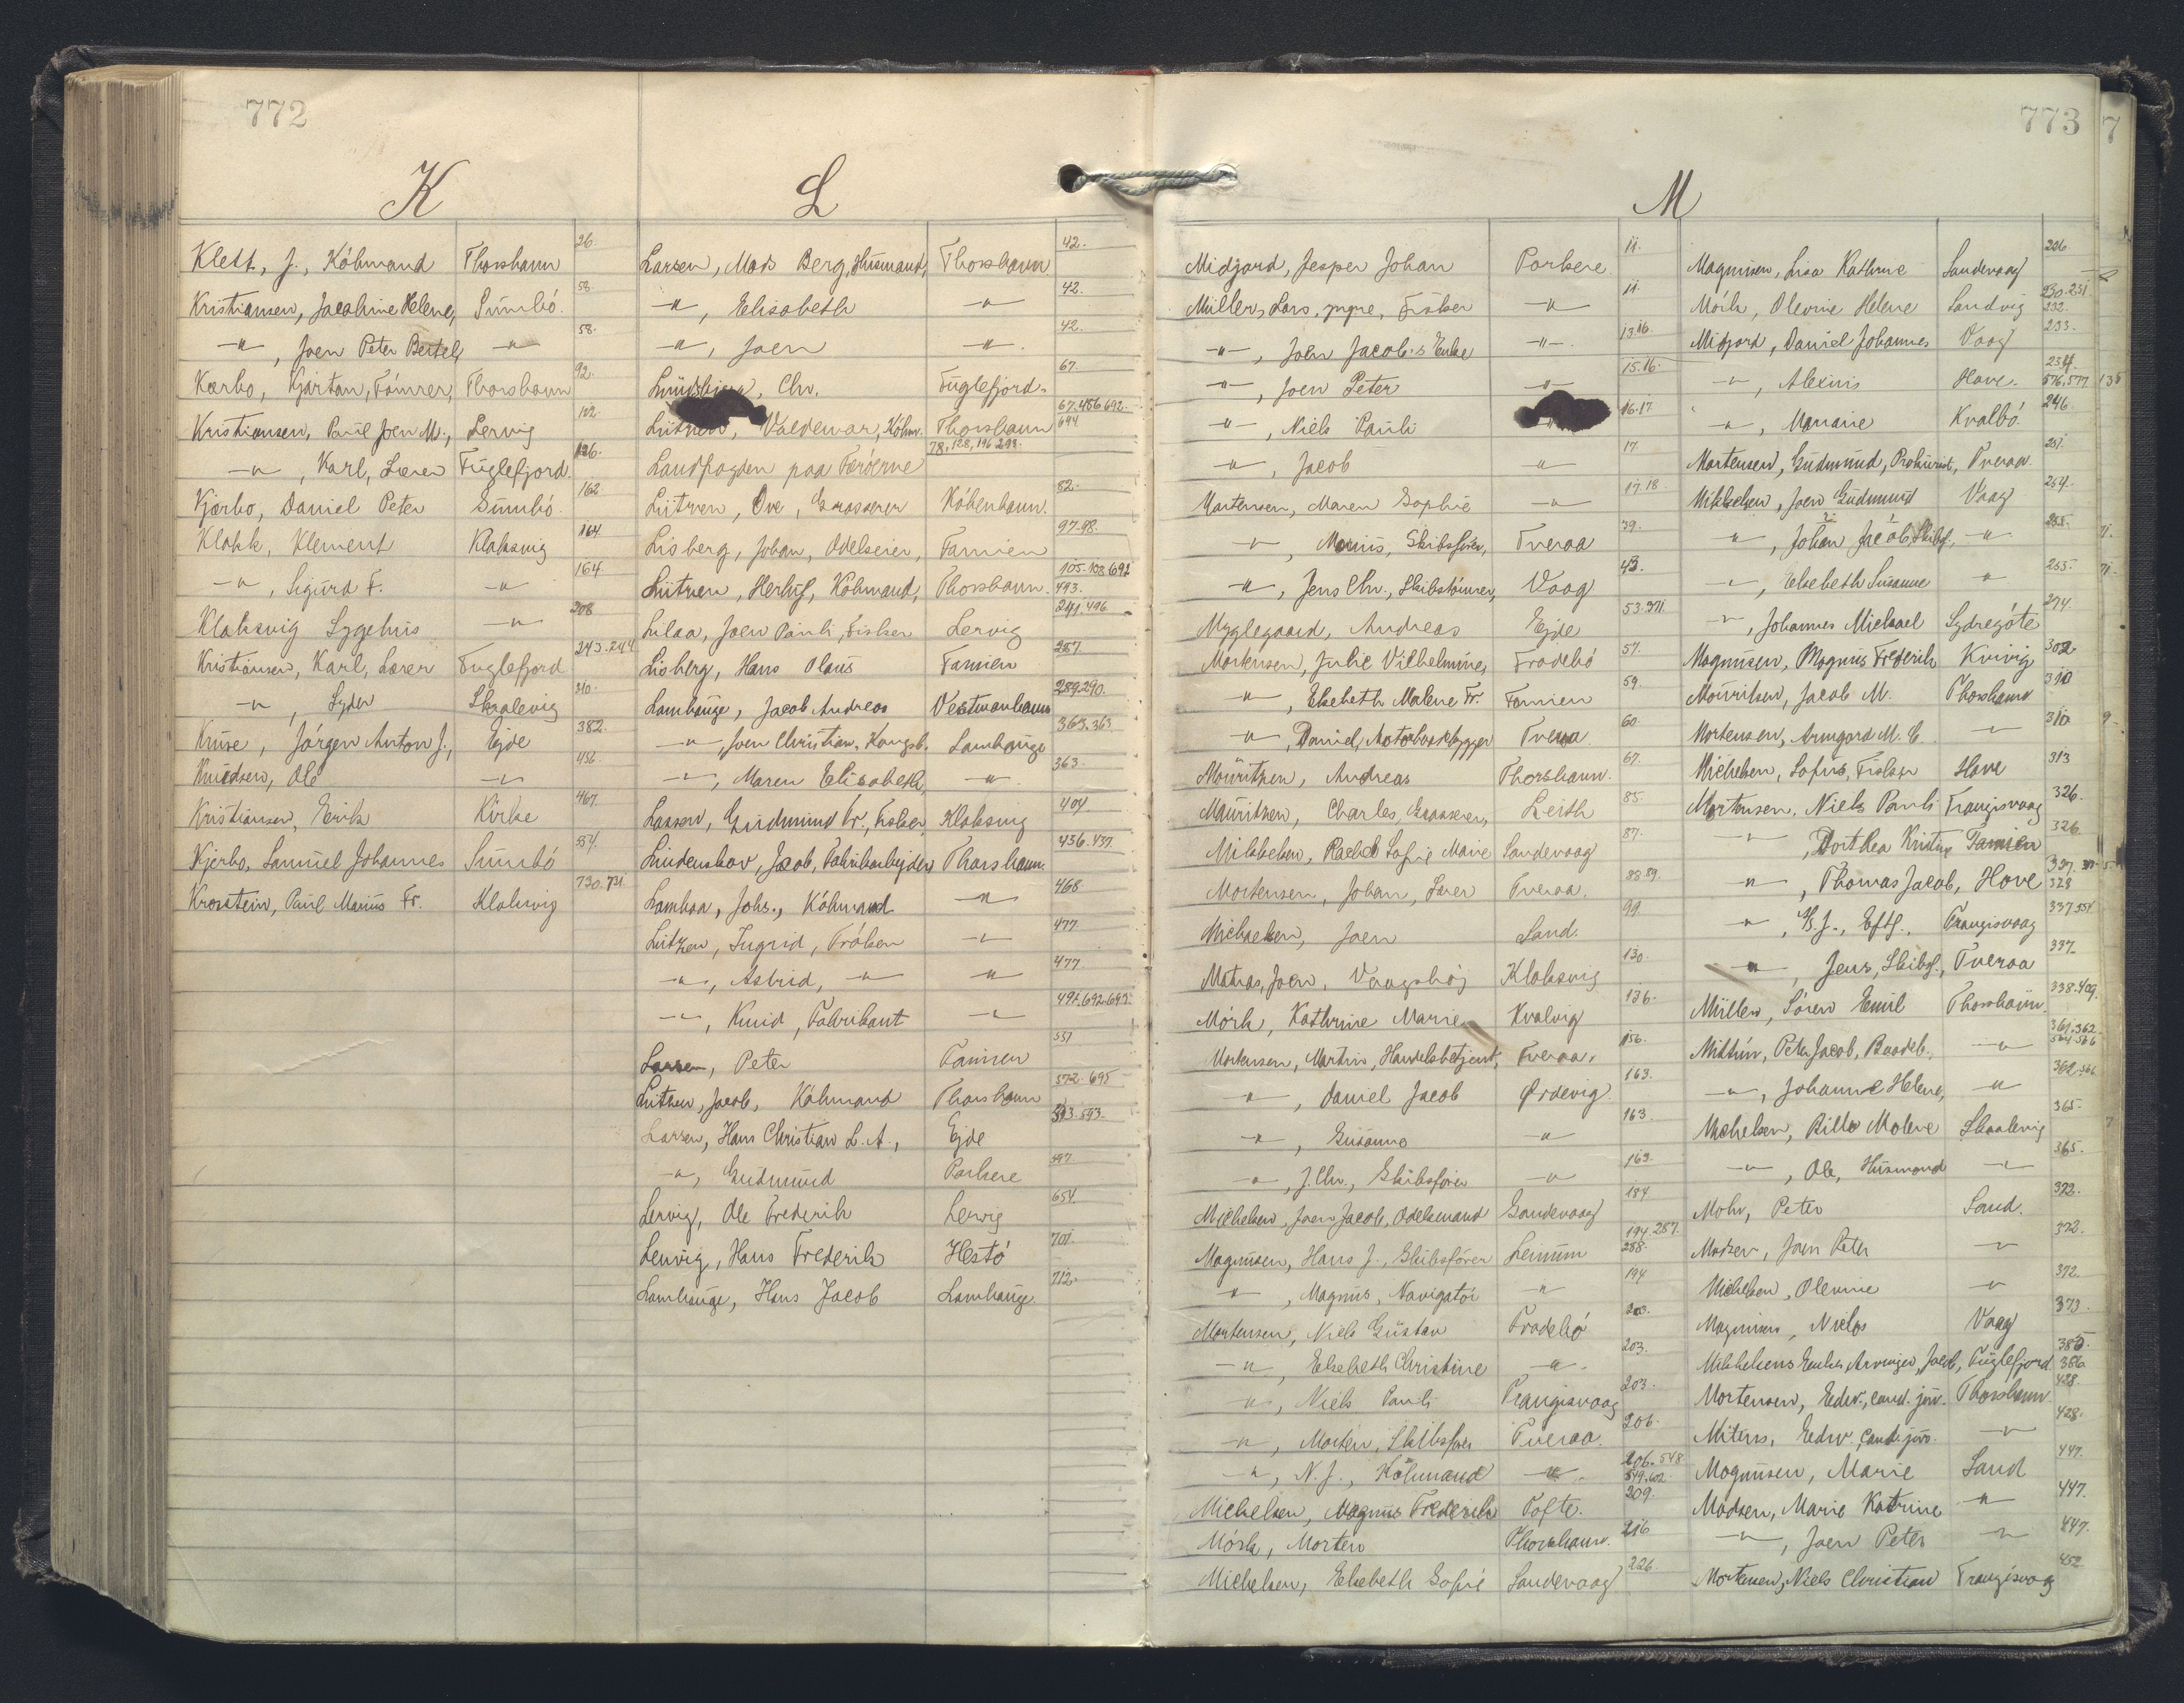 772
K
Klett, J., Köhmand Thorshavn 26.
Kristiansen, Jacobine Helene, Sumbö. 58.
-"-, Joen Peter Bertel, -"- 58.
Kærbo, Kjartan, Tömrer, Thorshavn 92.
Kristiansen, Paul Joen M., Lervig 112.
-"-, Karl, Lærer Fuglefjord. 126.
Kjærbo, Daniel Peter Sumbö. 162
Klakk, Klement Klaksvig 164
-"-, Sigurd F. -"- 164.
Klaksvig Sygehus -"- 208
Kristiansen, Karl, Lærer Fuglefjord 243.244
-"-, Syder Skaalevig 310.
Kruse, Jörgen Anton J., Ejde 382.
Knudsen, Ole -"- 456.
Kristiansen, Erik Kirke 467.
Kjerbo, Samuel Johannes Sumbó 534.
Krosstein, Paul Marius Fr. Klaksvig 730.731.
L
Larsen, Mads Berg, Husmand, Thorshavn 42.
-"-, Elisabeth -"- 42.
-"-, Joen -"- 42.
Chr. Fuglefjord. 67.
Lützen, Valdemar, Köhm. Thorshavn 67.486.692. 694
Landfogden paa Færöerne 78, 128, 196 293.
Lützen, Ove, Grosserer Köbenhavn. 82.
Lisberg, Johan, Odelseier, Famien 97.98.
Lützen, Herluf, Köhmand, Thorshavn. 105.108.692 493.
Lilaa, Joen Pauli, Fisker Lervig 241.496
Lisberg, Hans Olaus Famien 257.
Lamhauge, Jacob Andreas Vestmanhavn 289.290.
-"-, Joen Christian, Kongsb. Lamhauge 363.363
-"-, Maren Elisabeth, -"- 363.
Lassen, Gudmund Fr., Fisker, Klaksvig 404
Lindenskov, Jacob, Fabrikarbejder, Thorshavn. 436.437.
Lamhaa, Johs., Köhmand -"- 468
Lützen, Ingrid, Fröken -"- 477.
-"-, Astrid, -"- -"- 477.
-"-, Knud, Fabrikant -"- 491.692.693.
Larsen, Peter Famien 551
Lützen, Jacob, Köhmand Thorshavn 572.695
Larsen, Hans Christian L. A., Ejde 593.593.
-"-, Gudmund Porkere 597.
Lervig, Ole Frederik Lervig 654.
Lervig, Hans Frederik Hestö 701.
Lamhauge, Hans Jacob Lamhauge. 712.
773
M
Midgard, Jesper Johan Porkere 11.
Müller, Lars, yngre, Fisker -"- 11.
-"-, Joen Jacob.s Enke -"-. 13.16.
-"-, Joen Peter -"- 15.16.
-"-, Niels Pauli -"- 16.17.
-"-, Jacob -"- 17.
Mortensen, Maren Sophie -"- 17.18.
-"-, Marius, Skibsfører, Tveraa 39.
-"-, Jens Chr., Skibstömrer, Vaag 43.
Myglegaard, Andreas Ejde 53.371.
Mortensen, Julie Vilhelmine, Frodebö 57.
-"-, Elsebeth Malene Fr. Famien 59.
-"-, Daniel, Motorbaadbygger Tveraa 60.
Mouritzen, Andreas Thorshavn. 67.
Mauritzen, Charles, Grosserer, Leith 85.
Mikkelsen, Rachel Sofie Marie Sandevaag 87.
Mortensen, Johan, Lærer Tveraa. 88.89.
Michaelsen, Joen Sand. 99.
Matras, Joen, Vaagshöj Klaksvig 130.
Mörk, Kathrine Marie Kvalvig 136.
Mortensen, Martin, Handelsbetjent, Tveraa. 156.
-"-, Daniel Jacob Ørdevig. 163.
-"-, Susanne -"- 163.
-"-, J. Chr., Skibsfører -"- 163.
Michelsen, Joen Jacob, Odelsmand Sandevaag 184
Magnusen, Hans J., Skibsförer Leinum 194.287. 288.
-"-, Magnus, Navigatör -"- 194
Mortensen, Niels Gustav Frodebö 203.
-"-, Elsebeth Christine -"- 203.
-"-, Niels Pauli Trangisvaag 203.
-"-, Morten, Skibsförer Tveraa. 206.
-"-, N. J., Köhmand -"- 206.548 549.602.
Michelsen, Magnus Frederik Tofte. 209.
Mörk, Morten Thorshavn. 216
Michelsen, Elsebeth Sofie Sandevaag 226.
Magnusen, Lisa Kathrine Sandevaag 226
Mörk, Olevine Helene Sandvig 230.231. 232.
Midjord, Daniel Johannes Vaag 233.
-"-, Alexius Hove. 234. 576.577
-"-, Mananie Kvalbö. 246.
Mortensen, Gudmund, Prokurist, Tveraa 251.
Mikkelsen, Joen Gudmund Vaag 254.
-"-, Johan Jacob, Skibsf., -"- 255.
-"-, Elsebeth Susanne -"- 255.
-"-, Johannes Michael Sydregöte 274.
Magnusen, Magnus Frederik Kvivig 302
Mouritsen, Jacob M. Thorshavn 310
Mortensen, Armgard M. C. -"- 310
Michelsen, Sofus, Fisker Hove 313
Mortensen, Niels Pauli Trangisvaag 326.
-"-, Dorthea Kristine Famien 326
-"-, Thomas Jacob, Hove 328
-"-, Eftf., Trangisvaag 337.551
-"-, Jens, Skibsf., Tveraa 337.
Müller, Sören Emil Thorshavn. 338.409.
Mittún, Peter Jacob, Baadeb., -"- 361.362.
-"-, Johanne Helene, -"- 362.566
Michelsen, Billa Malene Skaalevig 365.
-"-, Ole, Husmand -"- 365.
Mohr, Peter Sand. 372.
Madsen, Joen Peter -"- 372.
Michelsen, Olevine -"- 372.
Magnusen, Niclas Vaag 373.
Mikkelsens Enkes Arvinger, Jacob, Fuglefjord 385. 386
Mortensen, Edv., cand. jur. Thorshavn 428.
Mitens, Edw. Cand. jur. -"- 428.
Magnusen, Marie Sand 447.
Madsen, Marie Katrine -"- 447.
-"-, Joen Peter -"- 447.
Mortensen, Niels Christian Trangisvaag 452
7